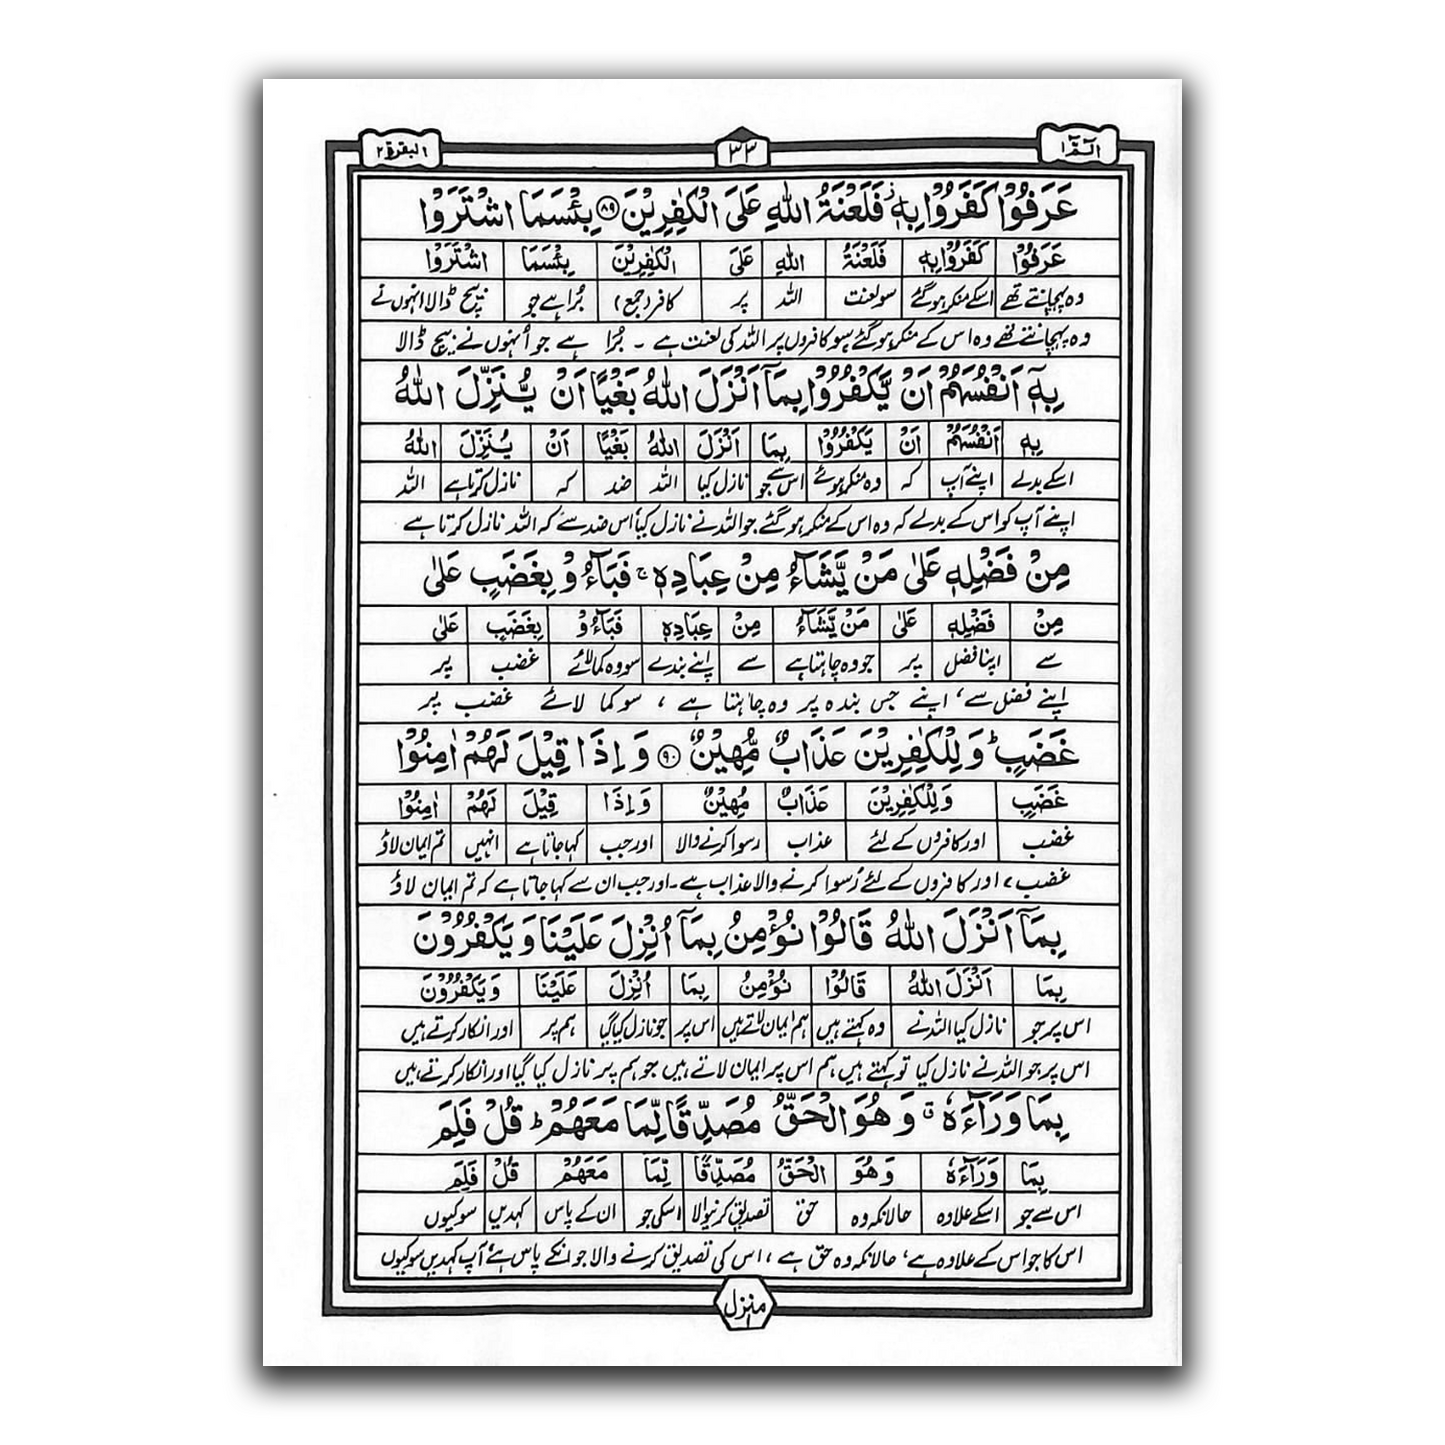 الٓمّٓ ۱
۳۳
البقرة ۲
عَرَفُوْا كَفَرُوْا بِهٖ ز فَلَعْنَةُ اللّٰهِ عَلَى الْكٰفِرِيْنَ ﴿۸۹﴾ بِئْسَمَا اشْتَرَوْا
عَرَفُوْا كَفَرُوْا بِهٖ فَلَعْنَةُ اللّٰهِ عَلَى الْكٰفِرِيْنَ بِئْسَمَا اشْتَرَوْا
وہ پہچانتے تھے اسکے منکر ہوگئے سو لعنت اللہ پر کافر (جمع) بُرا ہے جو بیچ ڈالا انہوں نے
وہ پہچانتے تھے وہ اس کے منکر ہوگئے سو کافروں پر اللہ کی لعنت ہے ۔ بُرا ہے جو اُنہوں نے بیچ ڈالا
بِهٖٓ اَنْفُسَهُمْ اَنْ يَّكْفُرُوْا بِمَآ اَنْزَلَ اللّٰهُ بَغْيًا اَنْ يُّنَزِّلَ اللّٰهُ
بِهٖ اَنْفُسَهُمْ اَنْ يَكْفُرُوْا بِمَا اَنْزَلَ اللّٰهُ بَغْيًا اَنْ يُنَزِّلَ اللّٰهُ
اسکے بدلے اپنے آپ کہ وہ منکر ہوئے اس سے جو نازل کیا اللہ ضد کہ نازل کرتا ہے اللہ
اپنے آپ کو اس کے بدلے کہ وہ اس کے منکر ہوگئے جو اللہ نے نازل کیا، اس ضد سے کہ اللہ نازل کرتا ہے
مِنْ فَضْلِهٖ عَلٰى مَنْ يَّشَآءُ مِنْ عِبَادِهٖ ج فَبَآءُوْ بِغَضَبٍ عَلٰى
مِنْ فَضْلِهٖ عَلٰى مَنْ يَّشَآءُ مِنْ عِبَادِهٖ فَبَآءُوْ بِغَضَبٍ عَلٰى
سے اپنا فضل پر جو وہ چاہتا ہے سے اپنے بندے سو وہ کما لائے غضب پر
اپنے فضل سے، اپنے جس بندہ پر وہ چاہتا ہے ، سو کما لائے غضب پر
غَضَبٍ ط وَلِلْكٰفِرِيْنَ عَذَابٌ مُّهِيْنٌ ﴿۹۰﴾ وَاِذَا قِيْلَ لَهُمْ اٰمِنُوْا
غَضَبٍ وَلِلْكٰفِرِيْنَ عَذَابٌ مُهِيْنٌ وَاِذَا قِيْلَ لَهُمْ اٰمِنُوْا
غضب اور کافروں کے لئے عذاب رسوا کرنے والا اور جب کہا جاتا ہے انہیں تم ایمان لاؤ
غضب، اور کافروں کے لئے رُسوا کرنے والا عذاب ہے۔ اور جب ان سے کہا جاتا ہے کہ تم ایمان لاؤ
بِمَآ اَنْزَلَ اللّٰهُ قَالُوْا نُؤْمِنُ بِمَآ اُنْزِلَ عَلَيْنَا وَيَكْفُرُوْنَ
بِمَا اَنْزَلَ اللّٰهُ قَالُوْا نُؤْمِنُ بِمَا اُنْزِلَ عَلَيْنَا وَيَكْفُرُوْنَ
اس پر جو نازل کیا اللہ نے وہ کہتے ہیں ہم ایمان لاتے ہیں اس پر جو نازل کیا گیا ہم پر اور انکار کرتے ہیں
اس پر جو اللہ نے نازل کیا تو کہتے ہیں ہم اس پر ایمان لاتے ہیں جو ہم پر نازل کیا گیا اور انکار کرتے ہیں
بِمَا وَرَآءَهٗ ق وَهُوَ الْحَقُّ مُصَدِّقًا لِّمَا مَعَهُمْ ط قُلْ فَلِمَ
بِمَا وَرَآءَهٗ وَهُوَ الْحَقُّ مُصَدِّقًا لِّمَا مَعَهُمْ قُلْ فَلِمَ
اس سے جو اسکے علاوہ حالانکہ وہ حق تصدیق کرنیوالا اسکی جو ان کے پاس کہدیں سو کیوں
اس کا جو اس کے علاوہ ہے، حالانکہ وہ حق ہے ، اس کی تصدیق کرنے والا جو انکے پاس ہے، آپ کہدیں سو کیوں
منزل ۱